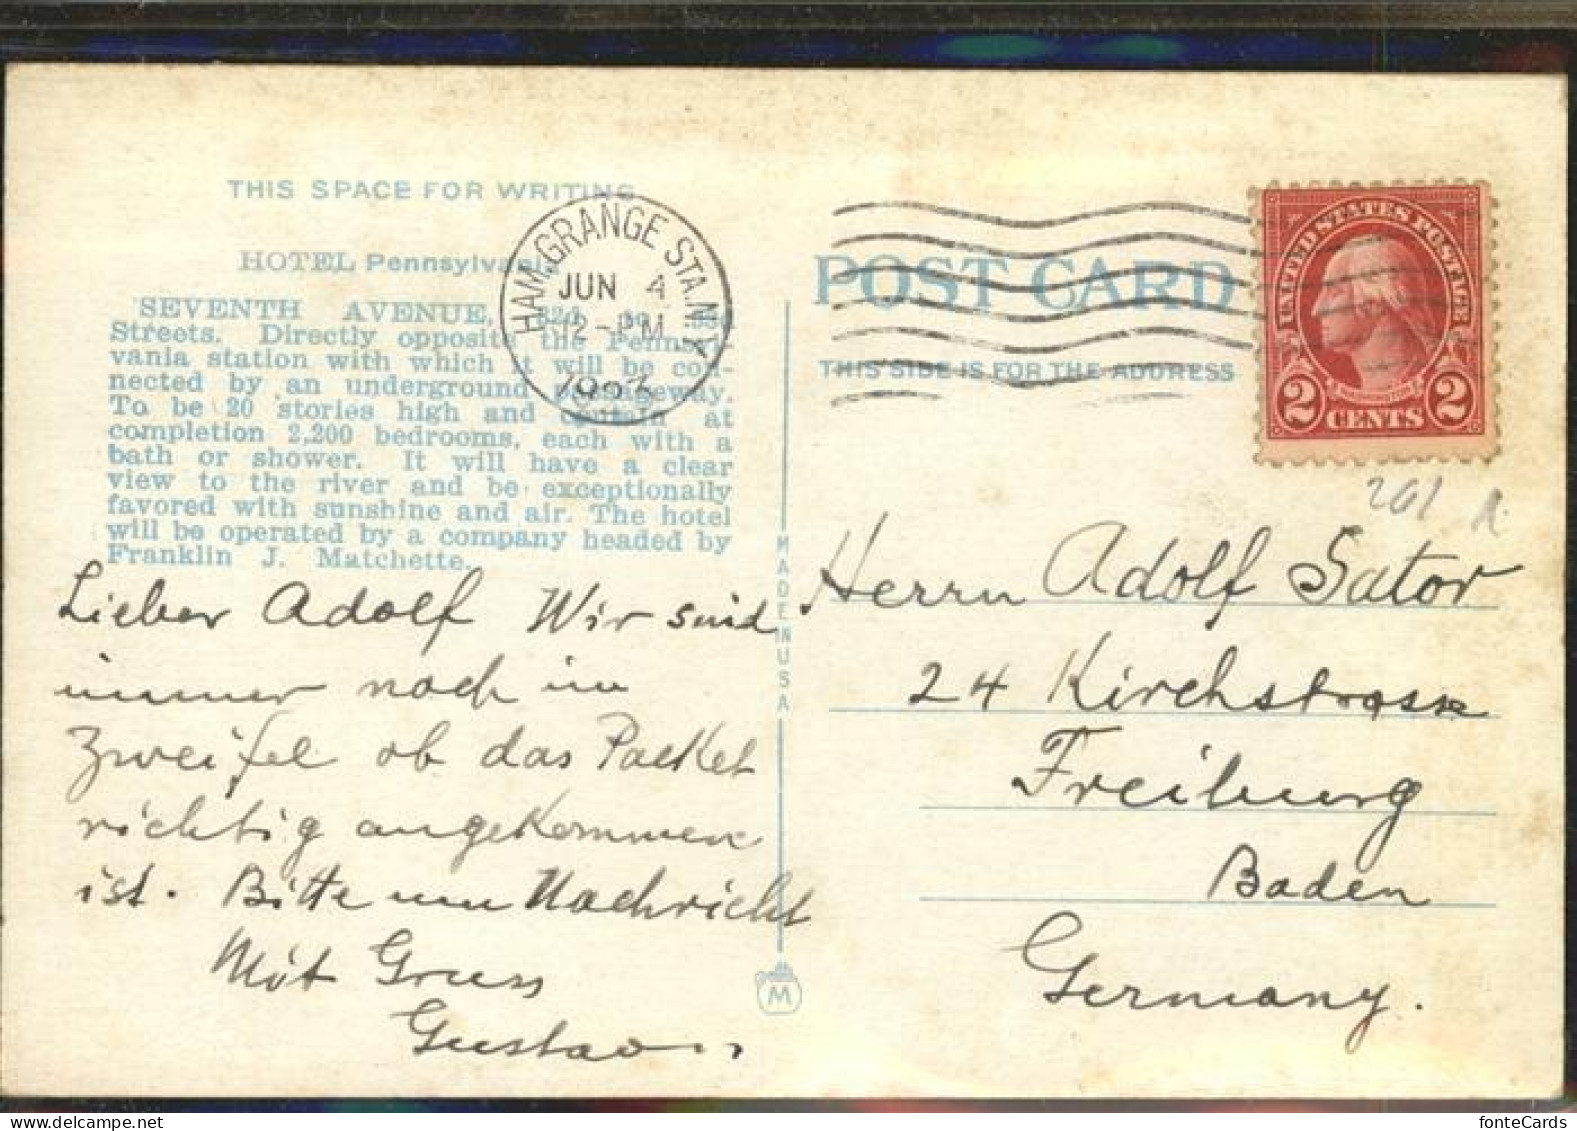 THIS SPACE FOR WRITING
HOTEL Pennsylvania
SEVENTH AVENUE,
Streets. Directly opposite the Pennsyl-
vania station with which it will be con-
nected by an underground passageway.
To be 20 stories high and contain at
completion 2,200 bedrooms, each with a
bath or shower. It will have a clear
view to the river and be exceptionally
favored with sunshine and air. The hotel
will be operated by a company headed by
Franklin J. Matchette.
HAM.GRANGE STA.N.Y.
JUN 4
12-PM
Lieber Adolf Wir sind
immer noch im
Zweifel ob das Packet
richtig angekommen
ist. Bitte um Nachricht
Mit Gruss
Gustav
MADE IN USA
M
POST CARD
THIS SIDE IS FOR THE ADDRESS
UNITED STATES POSTAGE
2 CENTS 2
201
Herrn Adolf Sator
24 Kirchstrasse
Freiburg
Baden
Germany.
fonteCards